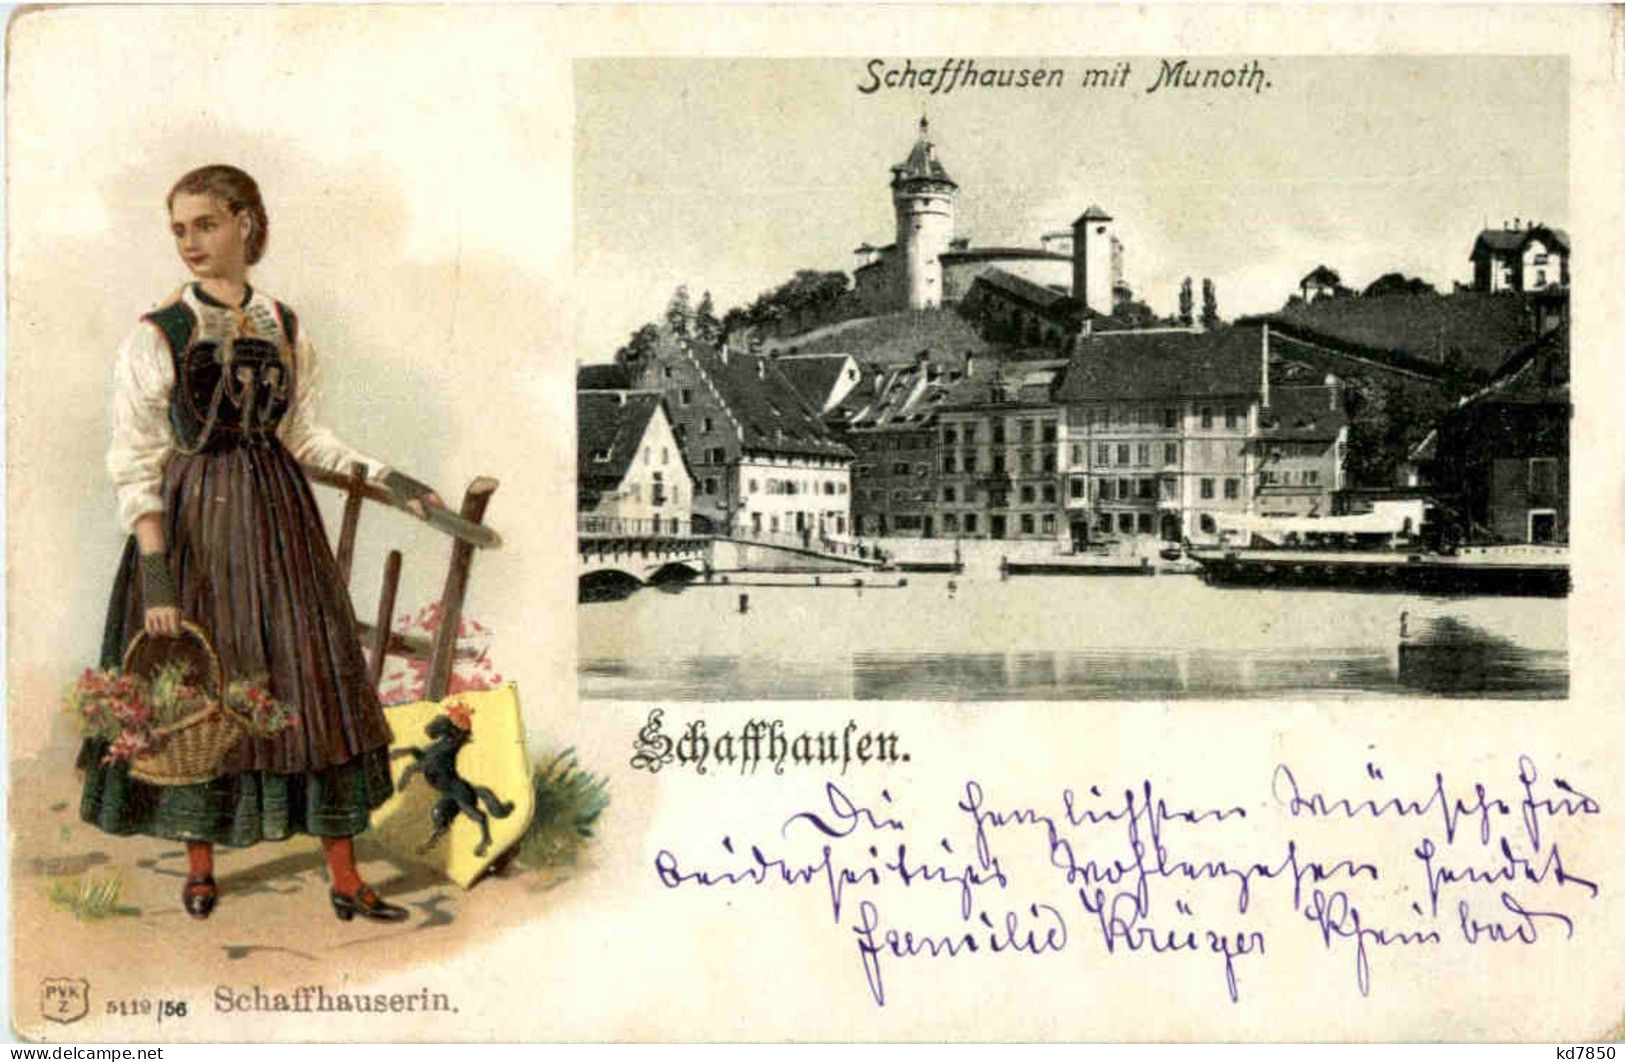 Schaffhausen mit Munoth.
Schaffhausen.
Die herzlichsten Wünsche für
beiderseitiges Wohlergehen sendet
Familie Krüger Rheinbad
PVK
Z
5119/56 Schaffhauserin.
delcampe.net
kd7850